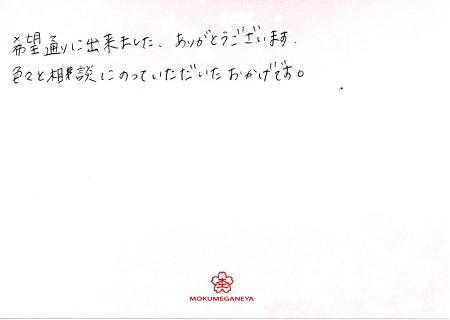 希望通りに出来ました、ありがとうございます.
色々と相談にのっていただいたおかげです。
MOKUMEGANEYA